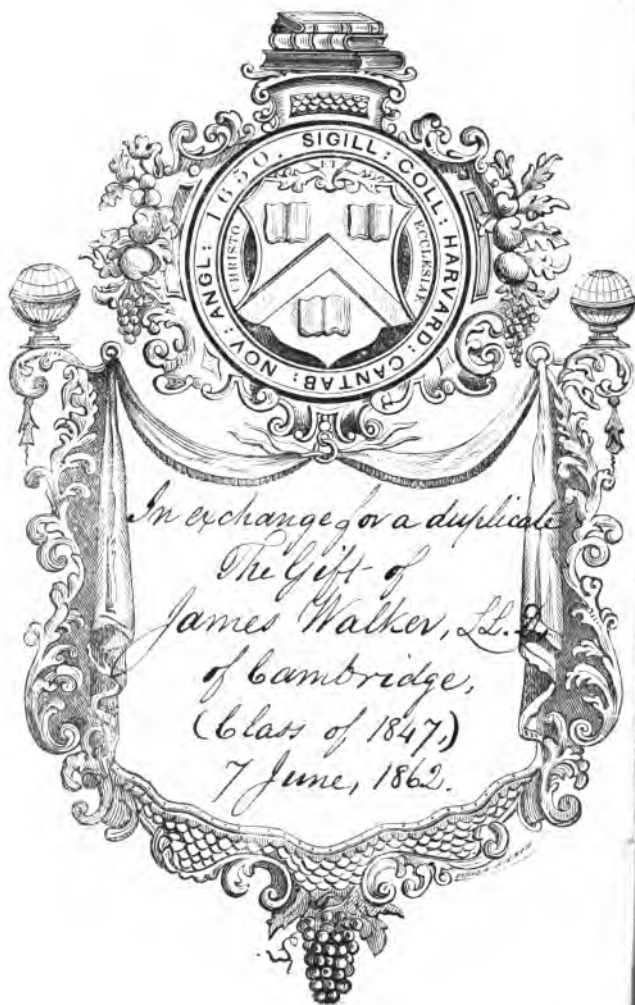 SIGILL: COLL: HARVARD: CANTAB: NOV: ANGL: 1650.
ET
CHRISTO
ECCLESIAE
In exchange for a duplicate
The Gift of
James Walker, LL.D.
of Cambridge,
(Class of 1847,)
7 June, 1862.